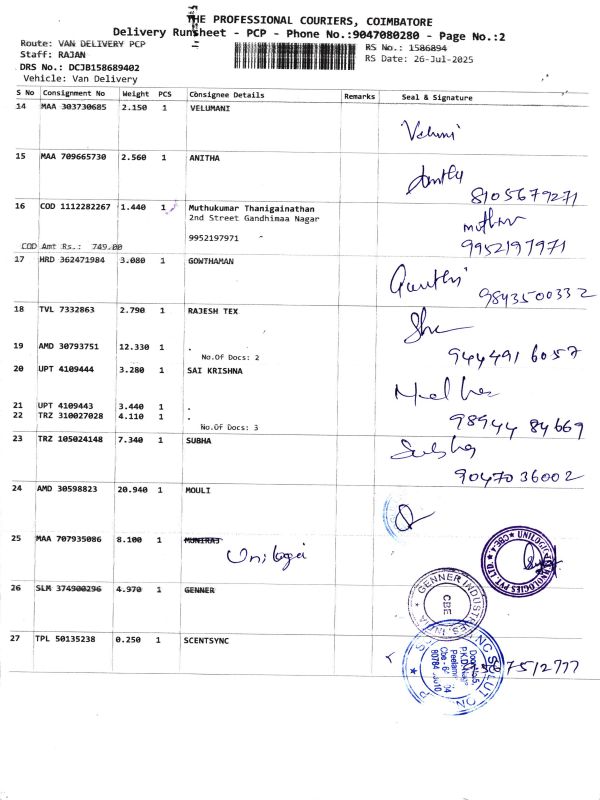 THE PROFESSIONAL COURIERS, COIMBATORE
Delivery Runsheet - PCP - Phone No.:9047080280 - Page No.:2
Route: VAN DELIVERY PCP
Staff: RAJAN
DRS No.: DCJB158689402
Vehicle: Van Delivery
RS No.: 1586894
RS Date: 26-Jul-2025
S No Consignment No Weight PCS Consignee Details Remarks Seal & Signature
14 MAA 303730685 2.150 1 VELUMANI
Velumi
15 MAA 709665730 2.560 1 ANITHA
8105679271
16 COD 1112282267 1.440 1 Muthukumar Thanigainathan
2nd Street Gandhimaa Nagar
9952197971
COD Amt Rs.: 749.00
9952197971
17 HRD 362471984 3.080 1 GOWTHAMAN
9843500332
18 TVL 7332863 2.790 1 RAJESH TEX
19 AMD 30793751 12.330 1 .
No.Of Docs: 2
9444916057
20 UPT 4109444 3.280 1 SAI KRISHNA
21 UPT 4109443 3.440 1 .
22 TRZ 310027028 4.110 1 .
No.Of Docs: 3
98944 84669
23 TRZ 105024148 7.340 1 SUBHA
Subha
9047036002
24 AMD 30598823 20.940 1 MOULI
25 MAA 707935086 8.100 1 MUNIRAJ
Unilogi
UNILOGIC TECHNOLOGIES PVT. LTD. CBE
26 SLM 374900296 4.970 1 GENNER
GENNER INDUSTRIES, INDIA
CBE
27 TPL 50135238 0.250 1 SCENTSYNC